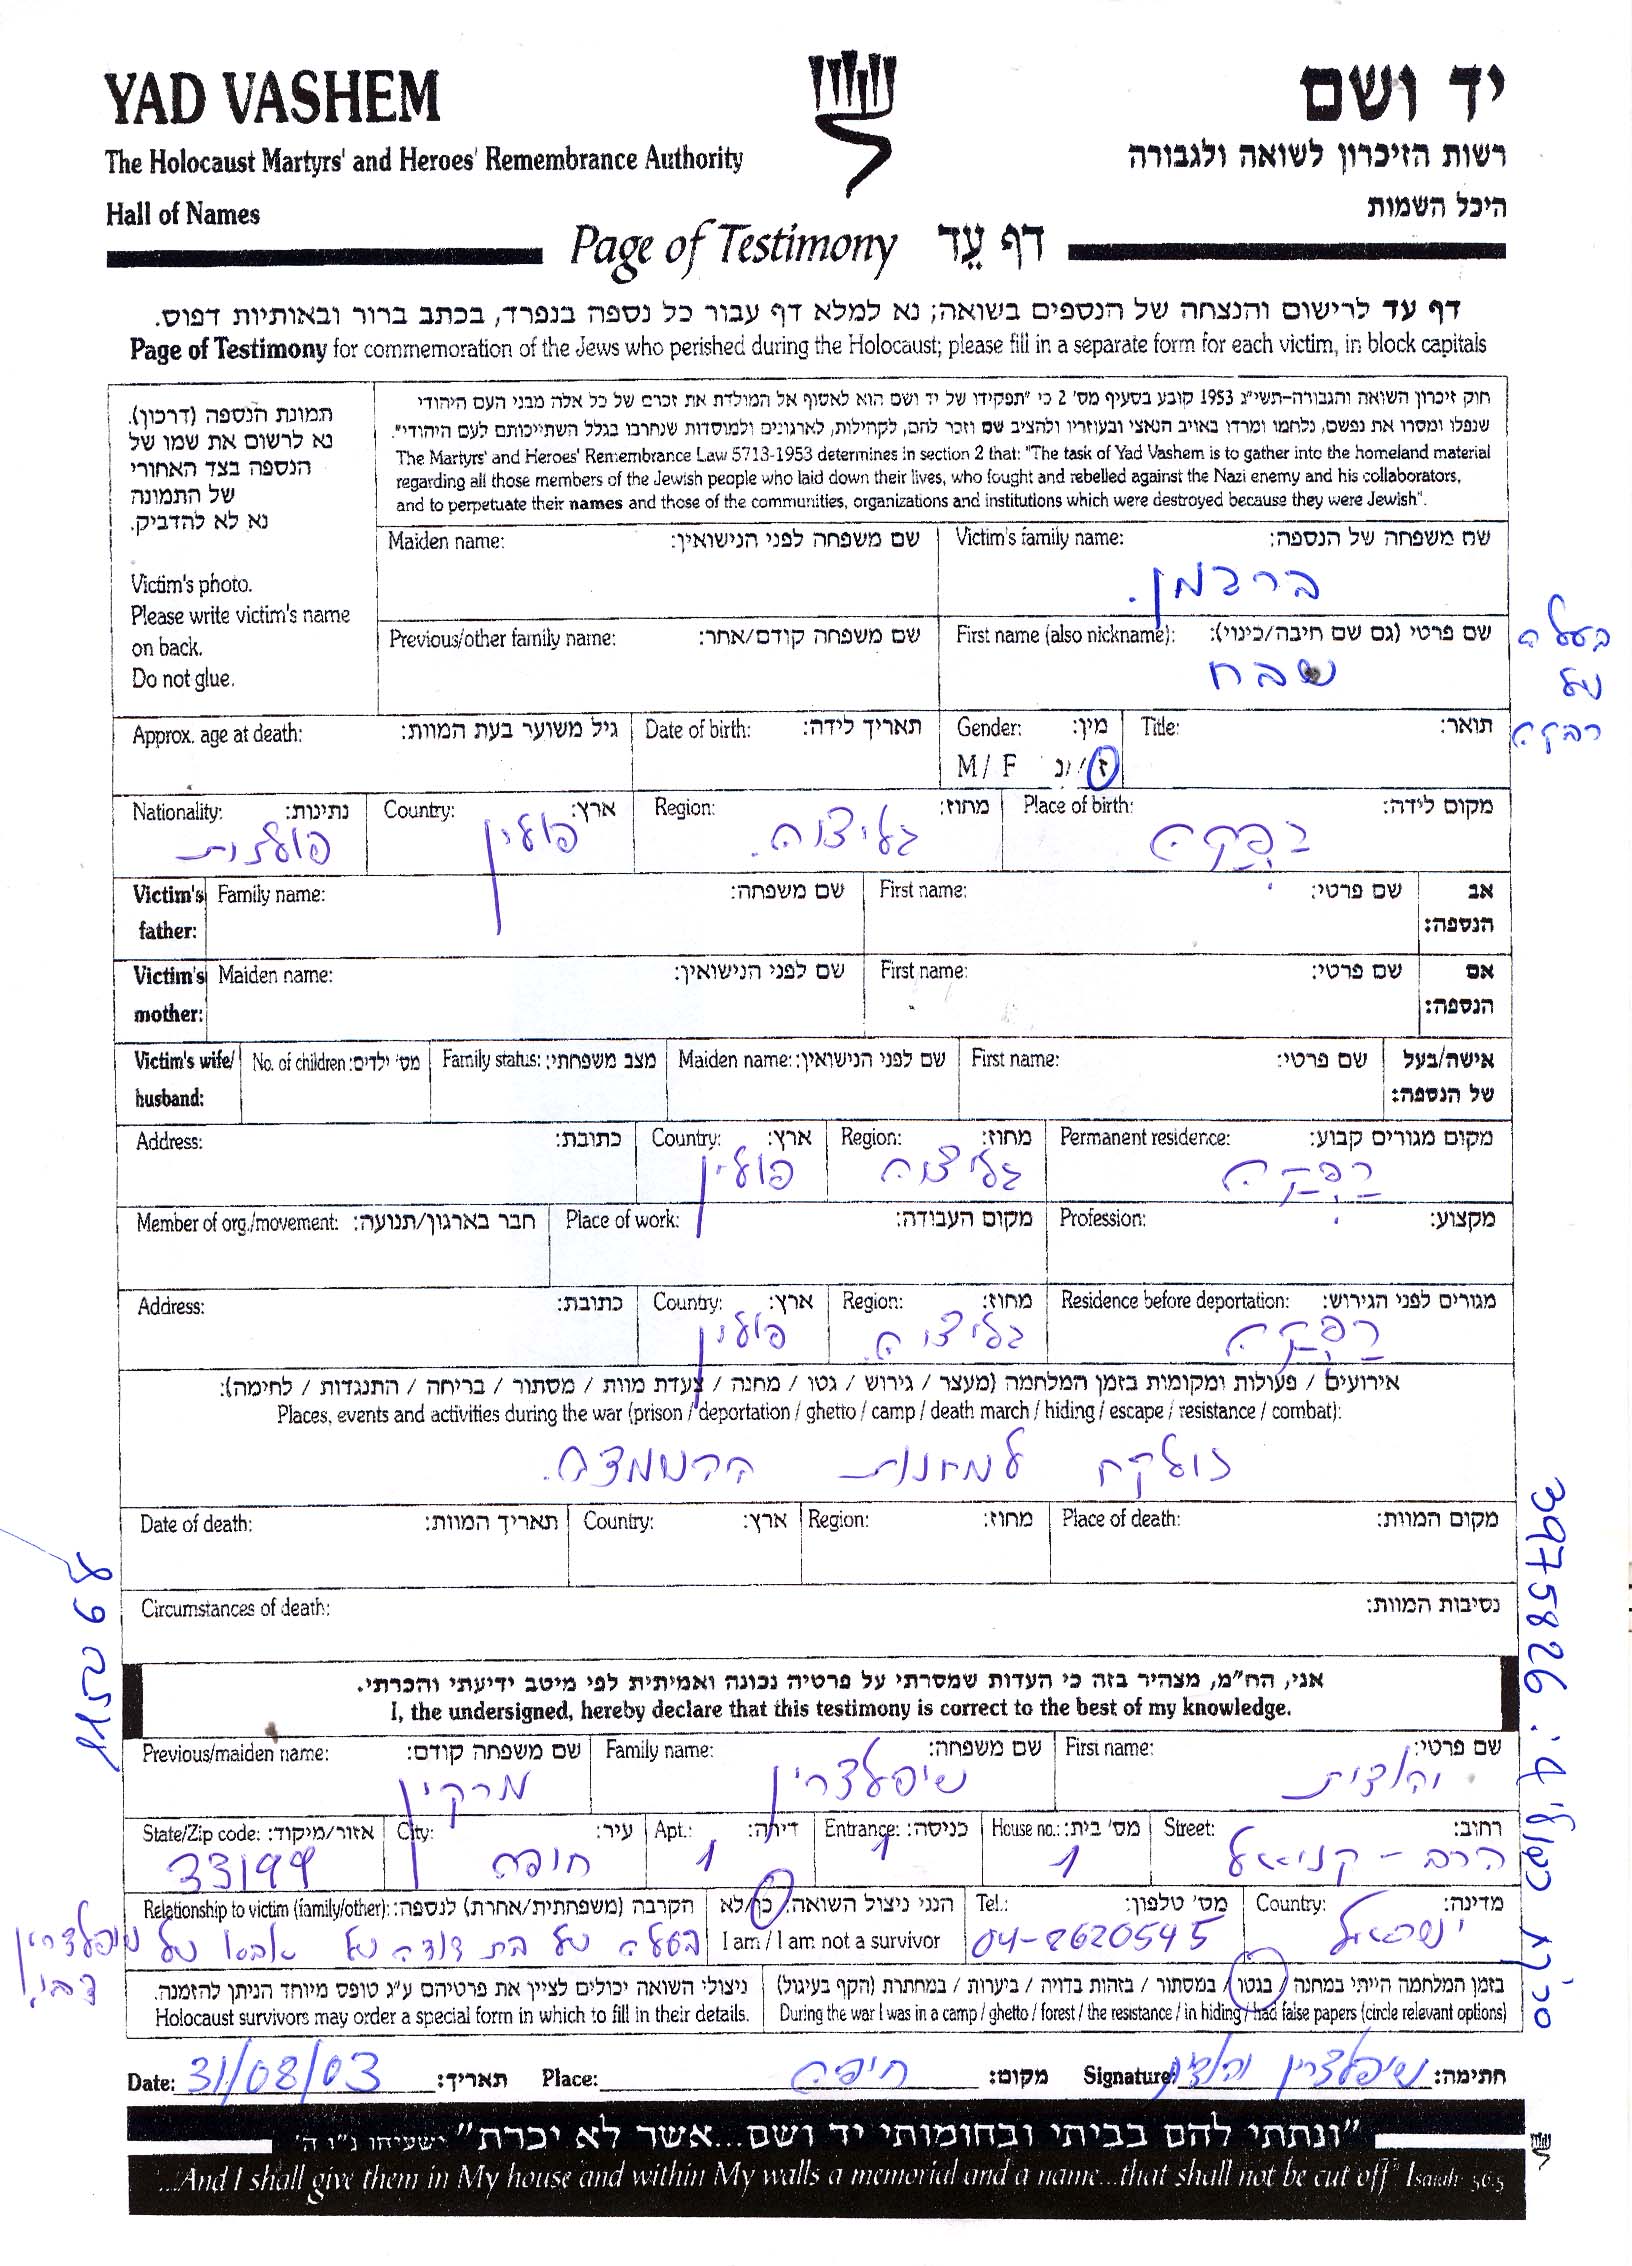 YAD VASHEM
יד ושם
The Holocaust Martyrs' and Heroes' Remembrance Authority
רשות הזיכרון לשואה ולגבורה
Hall of Names
היכל השמות
Page of Testimony דף עֵד
דף עד לרישום והנצחה של הנספים בשואה; נא למלא דף עבור כל נספה בנפרד, בכתב ברור ובאותיות דפוס.
Page of Testimony for commemoration of the Jews who perished during the Holocaust; please fill in a separate form for each victim, in block capitals
תמונת הנספה (דרכון).
נא לרשום את שמו של
הנספה בצד האחורי
של התמונה
נא לא להדביק.
Victim's photo.
Please write victim's name
on back.
Do not glue.
חוק זיכרון השואה והגבורה-תשי"ג 1953 קובע בסעיף מס' 2 כי "תפקידו של יד ושם הוא לאסוף אל המולדת את זכרם של כל אלה מבני העם היהודי
שנפלו ומסרו את נפשם, נלחמו ומרדו באויב הנאצי ובעוזריו ולהציב שם וזכר להם, לקהילות, לארגונים ולמוסדות שנחרבו בגלל השתייכותם לעם היהודי".
The Martyrs' and Heroes' Remembrance Law 5713-1953 determines in section 2 that: "The task of Yad Vashem is to gather into the homeland material
regarding all those members of the Jewish people who laid down their lives, who fought and rebelled against the Nazi enemy and his collaborators,
and to perpetuate their names and those of the communities, organizations and institutions which were destroyed because they were Jewish".
Maiden name: שם משפחה לפני הנישואין:
Victim's family name: שם משפחה של הנספה:
ברדמן.
Previous/other family name: שם משפחה קודם/אחר:
First name (also nickname): שם פרטי (גם שם חיבה/כינוי):
שבח
בעלה
של
רבקה
Approx. age at death: גיל משוער בעת המוות:
Date of birth: תאריך לידה:
Gender: מין:
M / F ז / נ
Title: תואר:
Nationality: נתינות:
פולנית
Country: ארץ:
פולין
Region: מחוז:
גליציה.
Place of birth: מקום לידה:
רבקה
Victim's father:
Family name: שם משפחה:
First name: שם פרטי:
אב הנספה:
Victim's mother:
Maiden name: שם לפני הנישואין:
First name: שם פרטי:
אם הנספה:
Victim's wife/ husband:
No. of children: מס' ילדים:
Family status: מצב משפחתי:
Maiden name: שם לפני הנישואין:
First name: שם פרטי:
אישה/בעל של הנספה:
Address: כתובת:
Country: ארץ:
פולין
Region: מחוז:
גליציה
Permanent residence: מקום מגורים קבוע:
Member of org./movement: חבר בארגון/תנועה:
Place of work: מקום העבודה:
Profession: מקצוע:
Address: כתובת:
Country: ארץ:
פולין
Region: מחוז:
גליציה.
Residence before deportation: מגורים לפני הגירוש:
אירועים / פעולות ומקומות בזמן המלחמה (מעצר / גירוש / גטו / מחנה / צעדת מוות / מסתור / בריחה / התנגדות / לחימה):
Places, events and activities during the war (prison / deportation / ghetto / camp / death march / hiding / escape / resistance / combat):
נלקח למחנות ההשמדה.
Date of death: תאריך המוות:
Country: ארץ:
Region: מחוז:
Place of death: מקום המוות:
Circumstances of death: נסיבות המוות:
אני, הח"מ, מצהיר בזה כי העדות שמסרתי על פרטיה נכונה ואמיתית לפי מיטב ידיעתי והכרתי.
I, the undersigned, hereby declare that this testimony is correct to the best of my knowledge.
Previous/maiden name: שם משפחה קודם:
מרקין
Family name: שם משפחה:
שיפלדרין
First name: שם פרטי:
יהודית
State/Zip code: אזור/מיקוד:
33199
City: עיר:
חיפה
Apt.: דירה:
1
Entrance: כניסה:
1
House no.: מס' בית:
1
Street: רחוב:
הרב - קניאל
Relationship to victim (family/other): הקרבה (משפחתית/אחרת) לנספה:
בעלה של בת דודה של אבא של שיפלדרין
הנני ניצול השואה: כן/לא
I am / I am not a survivor
Tel.: מס' טלפון:
04-8620545
Country: מדינה:
ישראל
ניצולי השואה יכולים לציין את פרטיהם ע"ג טופס מיוחד הניתן להזמנה.
Holocaust survivors may order a special form in which to fill in their details.
בזמן המלחמה הייתי במחנה / בגטו / במסתור / בזהות בדויה / ביערות / במחתרת (הקף בעיגול)
During the war I was in a camp / ghetto / forest / the resistance / in hiding / had false papers (circle relevant options)
Date: 31/08/03 תאריך:
Place: חיפה מקום:
Signature: שיפלדרין יהודית חתימה:
"ונתתי להם בביתי ובחומותי יד ושם...אשר לא יכרת" ישעיהו נ"ו ה'
"...And I shall give them in My house and within My walls a memorial and a name...that shall not be cut off" Isaiah 56:5
3975826